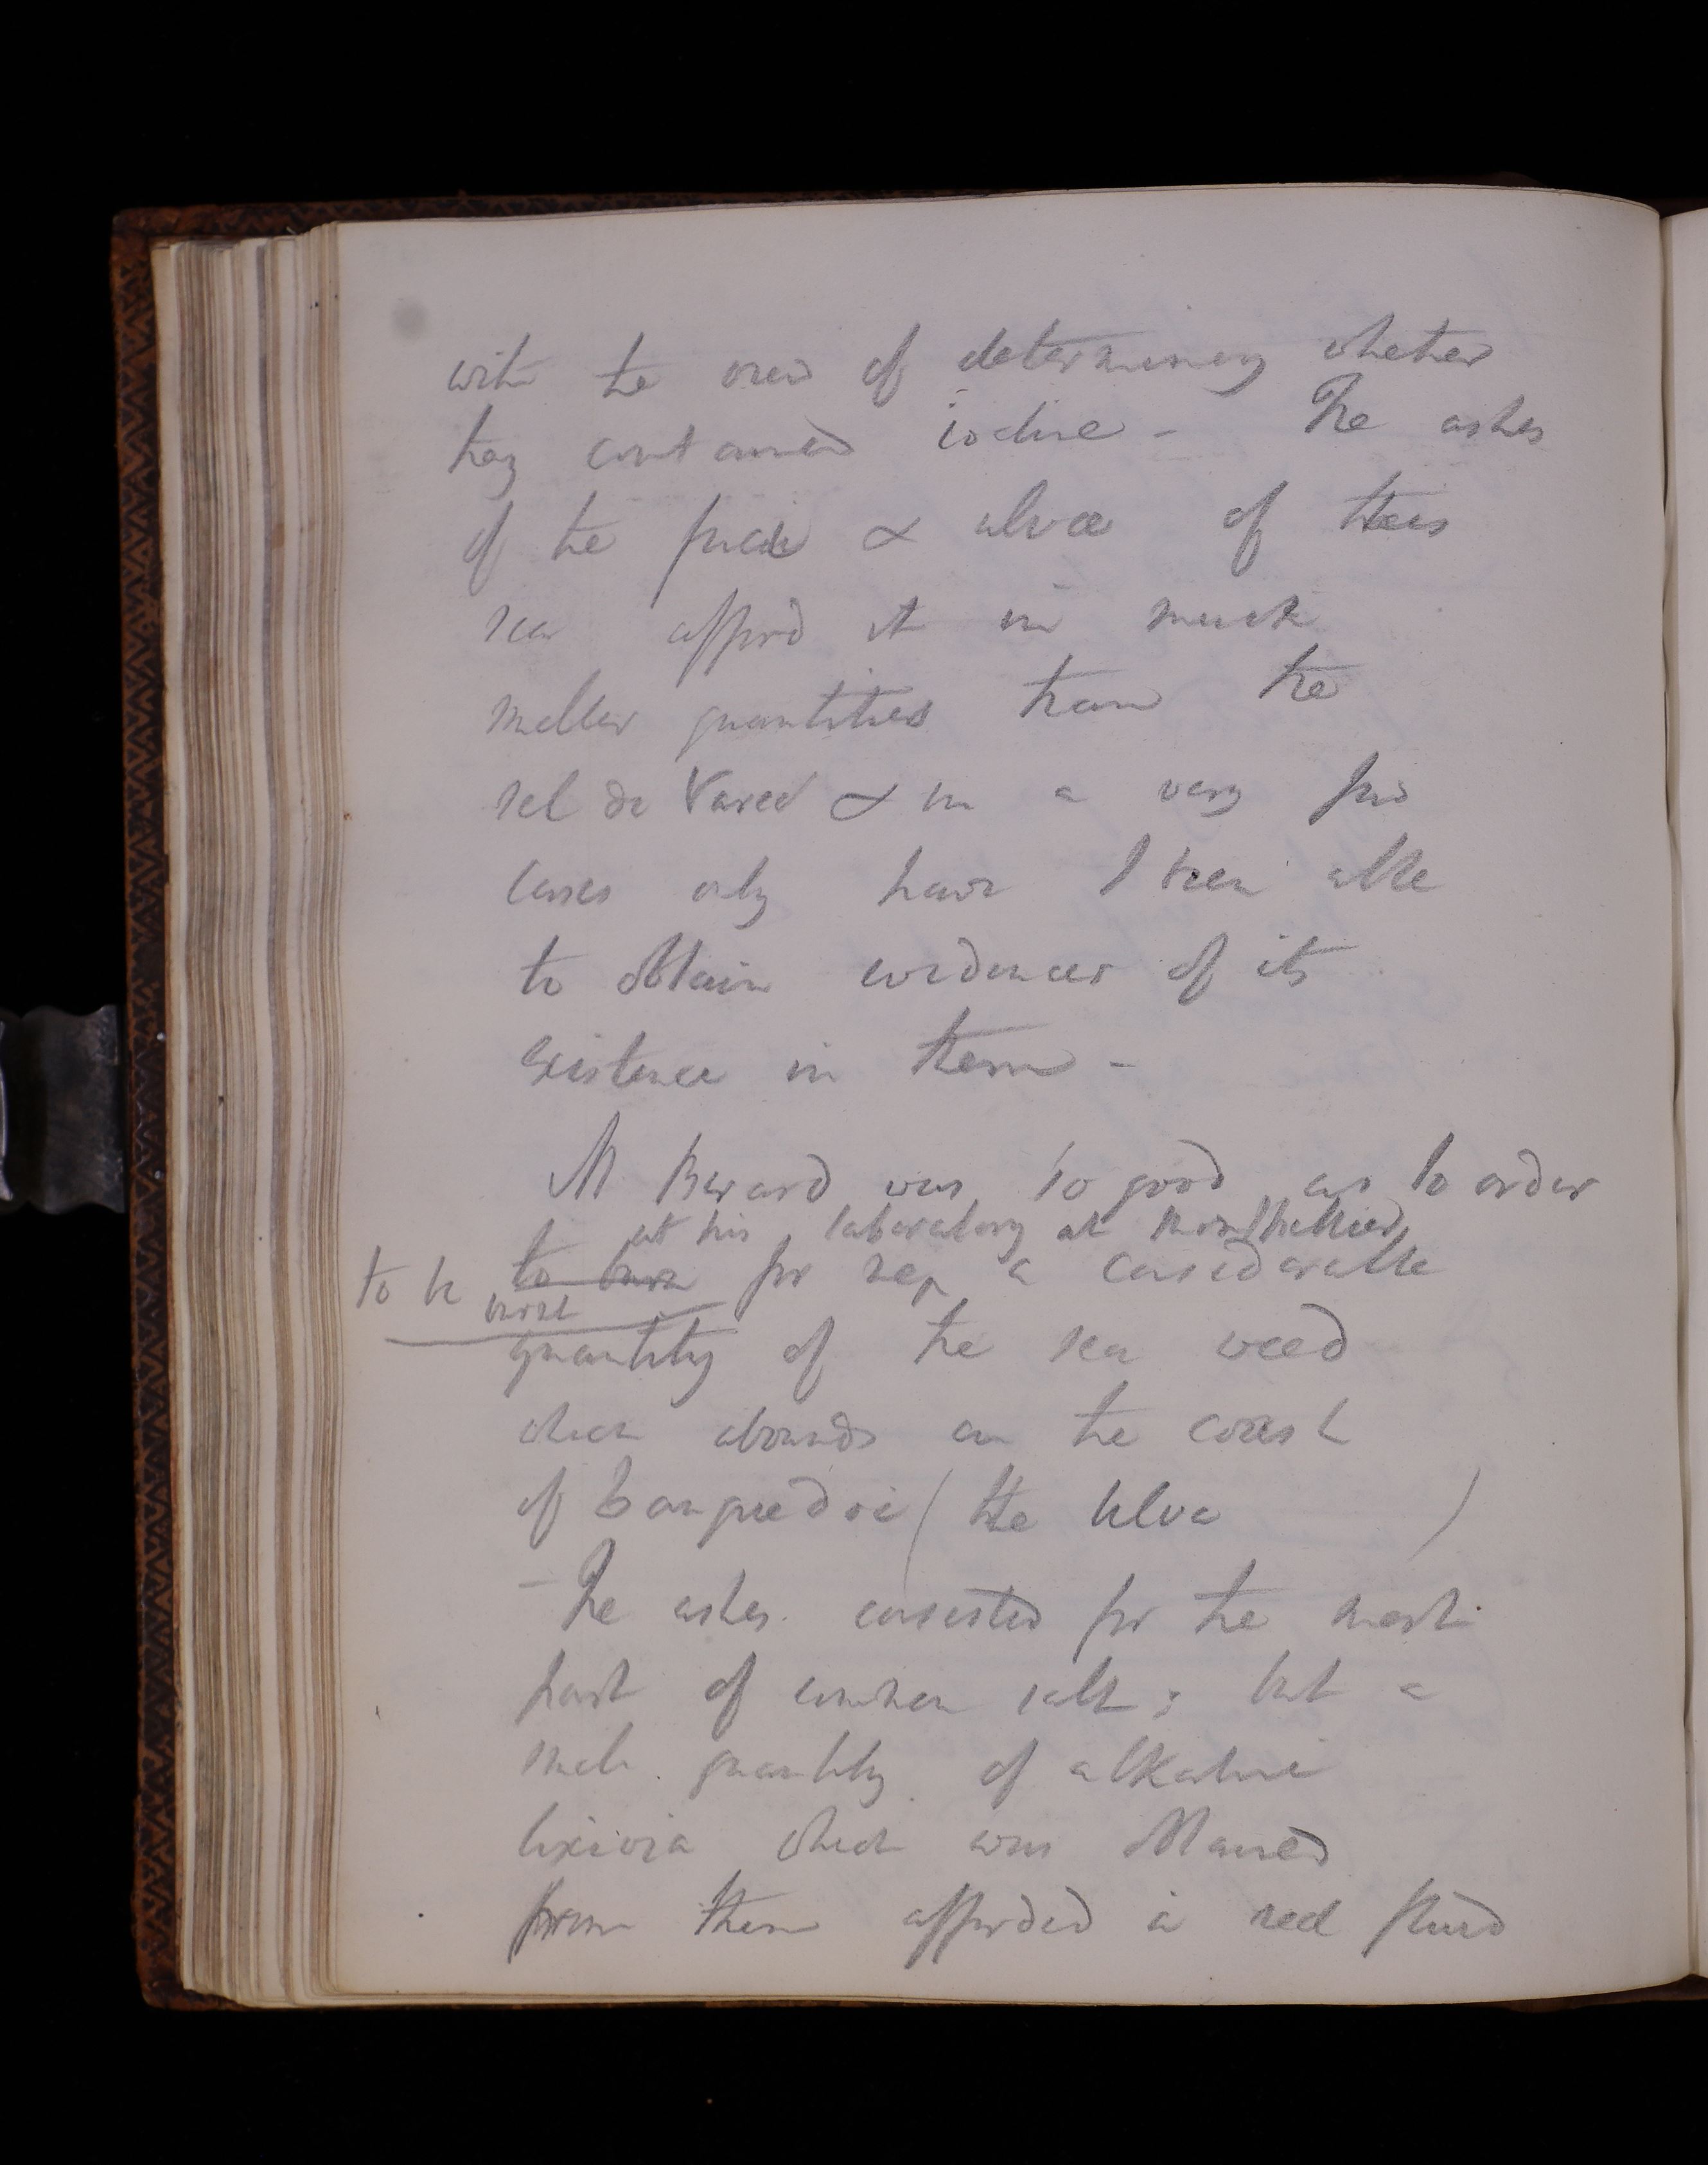 with the view of determining whether
they contained iodine - The ashes
of the fuci & ulvæ of this
sea afford it in much
smaller quantities than the
sel de Varec & in a very few
cases only have I been able
to obtain evidences of its
existence in them -
M Berard was so good as to order
at his laboratory at Montpellier
to be burnt
to burn for me a considerable
quantity of the sea weed
which abounds on the coast
of Languedoc (the Ulva )
- The ashes consisted for the most
part of common salt; but a
small quantity of alkaline
lixivia which was obtained
from them afforded a red fluid